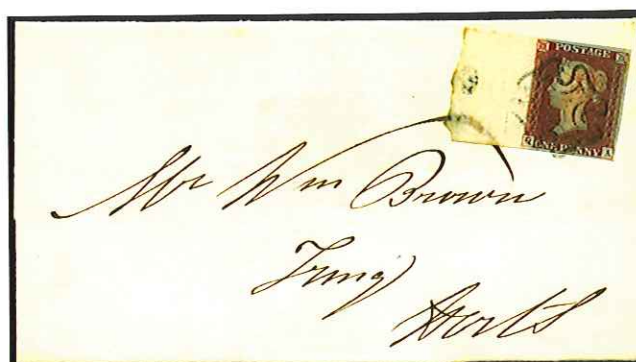 POSTAGE
ONE PENNY
Mr Wm Brown
Tring
Herts